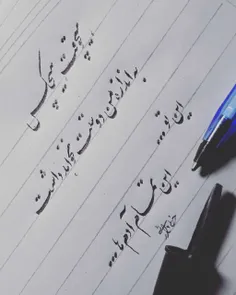 هیچوقت هیچکس
به اندازه من دوستت نخواهد داشت
این تو...
این تمام آدم ها...